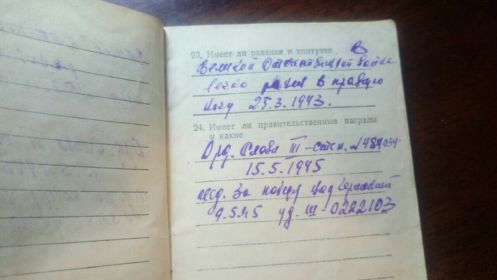 23. Имеет ли ранения и контузии В
Великой Отечественной войне
легко ранен в правую
ногу 25.3.1943.
24. Имеет ли правительственные награды
и какие
Орд. Слава III-степ.
15.5.1945
мед. За победу над Германией
9.5.45 уд. Ш-0222103